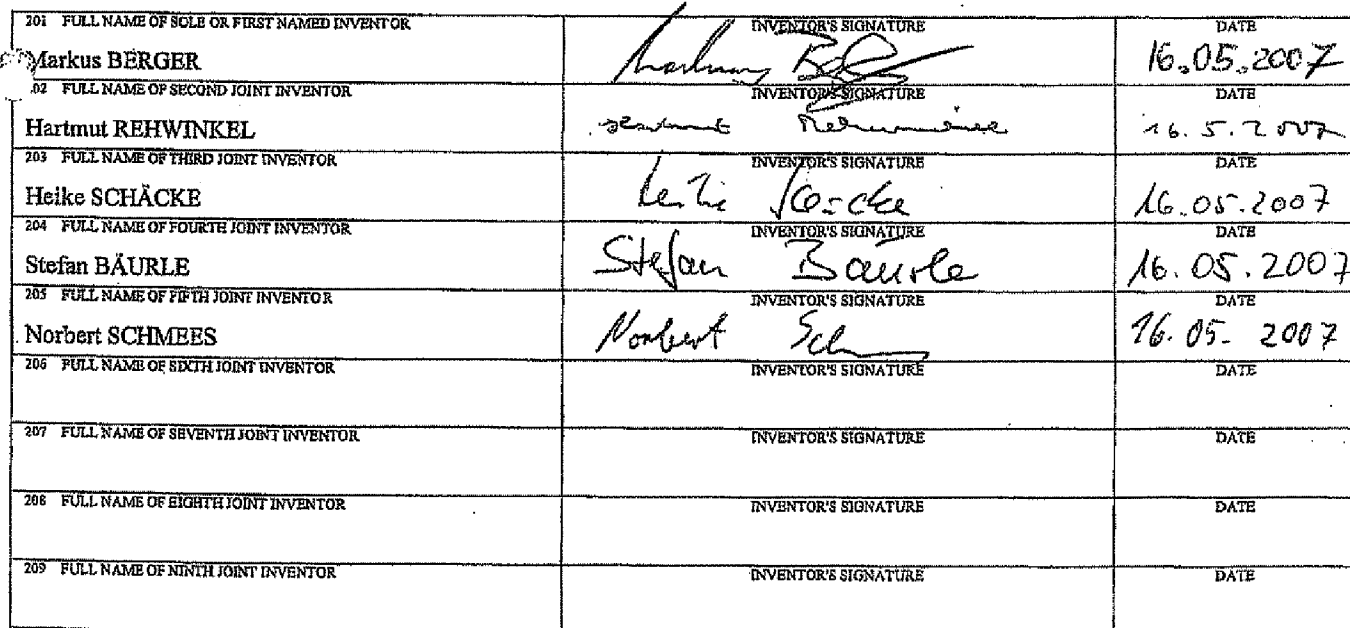 201 FULL NAME OF SOLE OR FIRST NAMED INVENTOR INVENTOR'S SIGNATURE DATE
Markus BERGER 16.05.2007
02 FULL NAME OF SECOND JOINT INVENTOR INVENTOR'S SIGNATURE DATE
Hartmut REHWINKEL 16.5.2007
203 FULL NAME OF THIRD JOINT INVENTOR INVENTOR'S SIGNATURE DATE
Heike SCHÄCKE 16.05.2007
204 FULL NAME OF FOURTH JOINT INVENTOR INVENTOR'S SIGNATURE DATE
Stefan BÄURLE Stefan Bäurle 16.05.2007
205 FULL NAME OF FIFTH JOINT INVENTOR INVENTOR'S SIGNATURE DATE
Norbert SCHMEES Norbert 16.05. 2007
206 FULL NAME OF SIXTH JOINT INVENTOR INVENTOR'S SIGNATURE DATE
207 FULL NAME OF SEVENTH JOINT INVENTOR INVENTOR'S SIGNATURE DATE
208 FULL NAME OF EIGHTH JOINT INVENTOR INVENTOR'S SIGNATURE DATE
209 FULL NAME OF NINTH JOINT INVENTOR INVENTOR'S SIGNATURE DATE